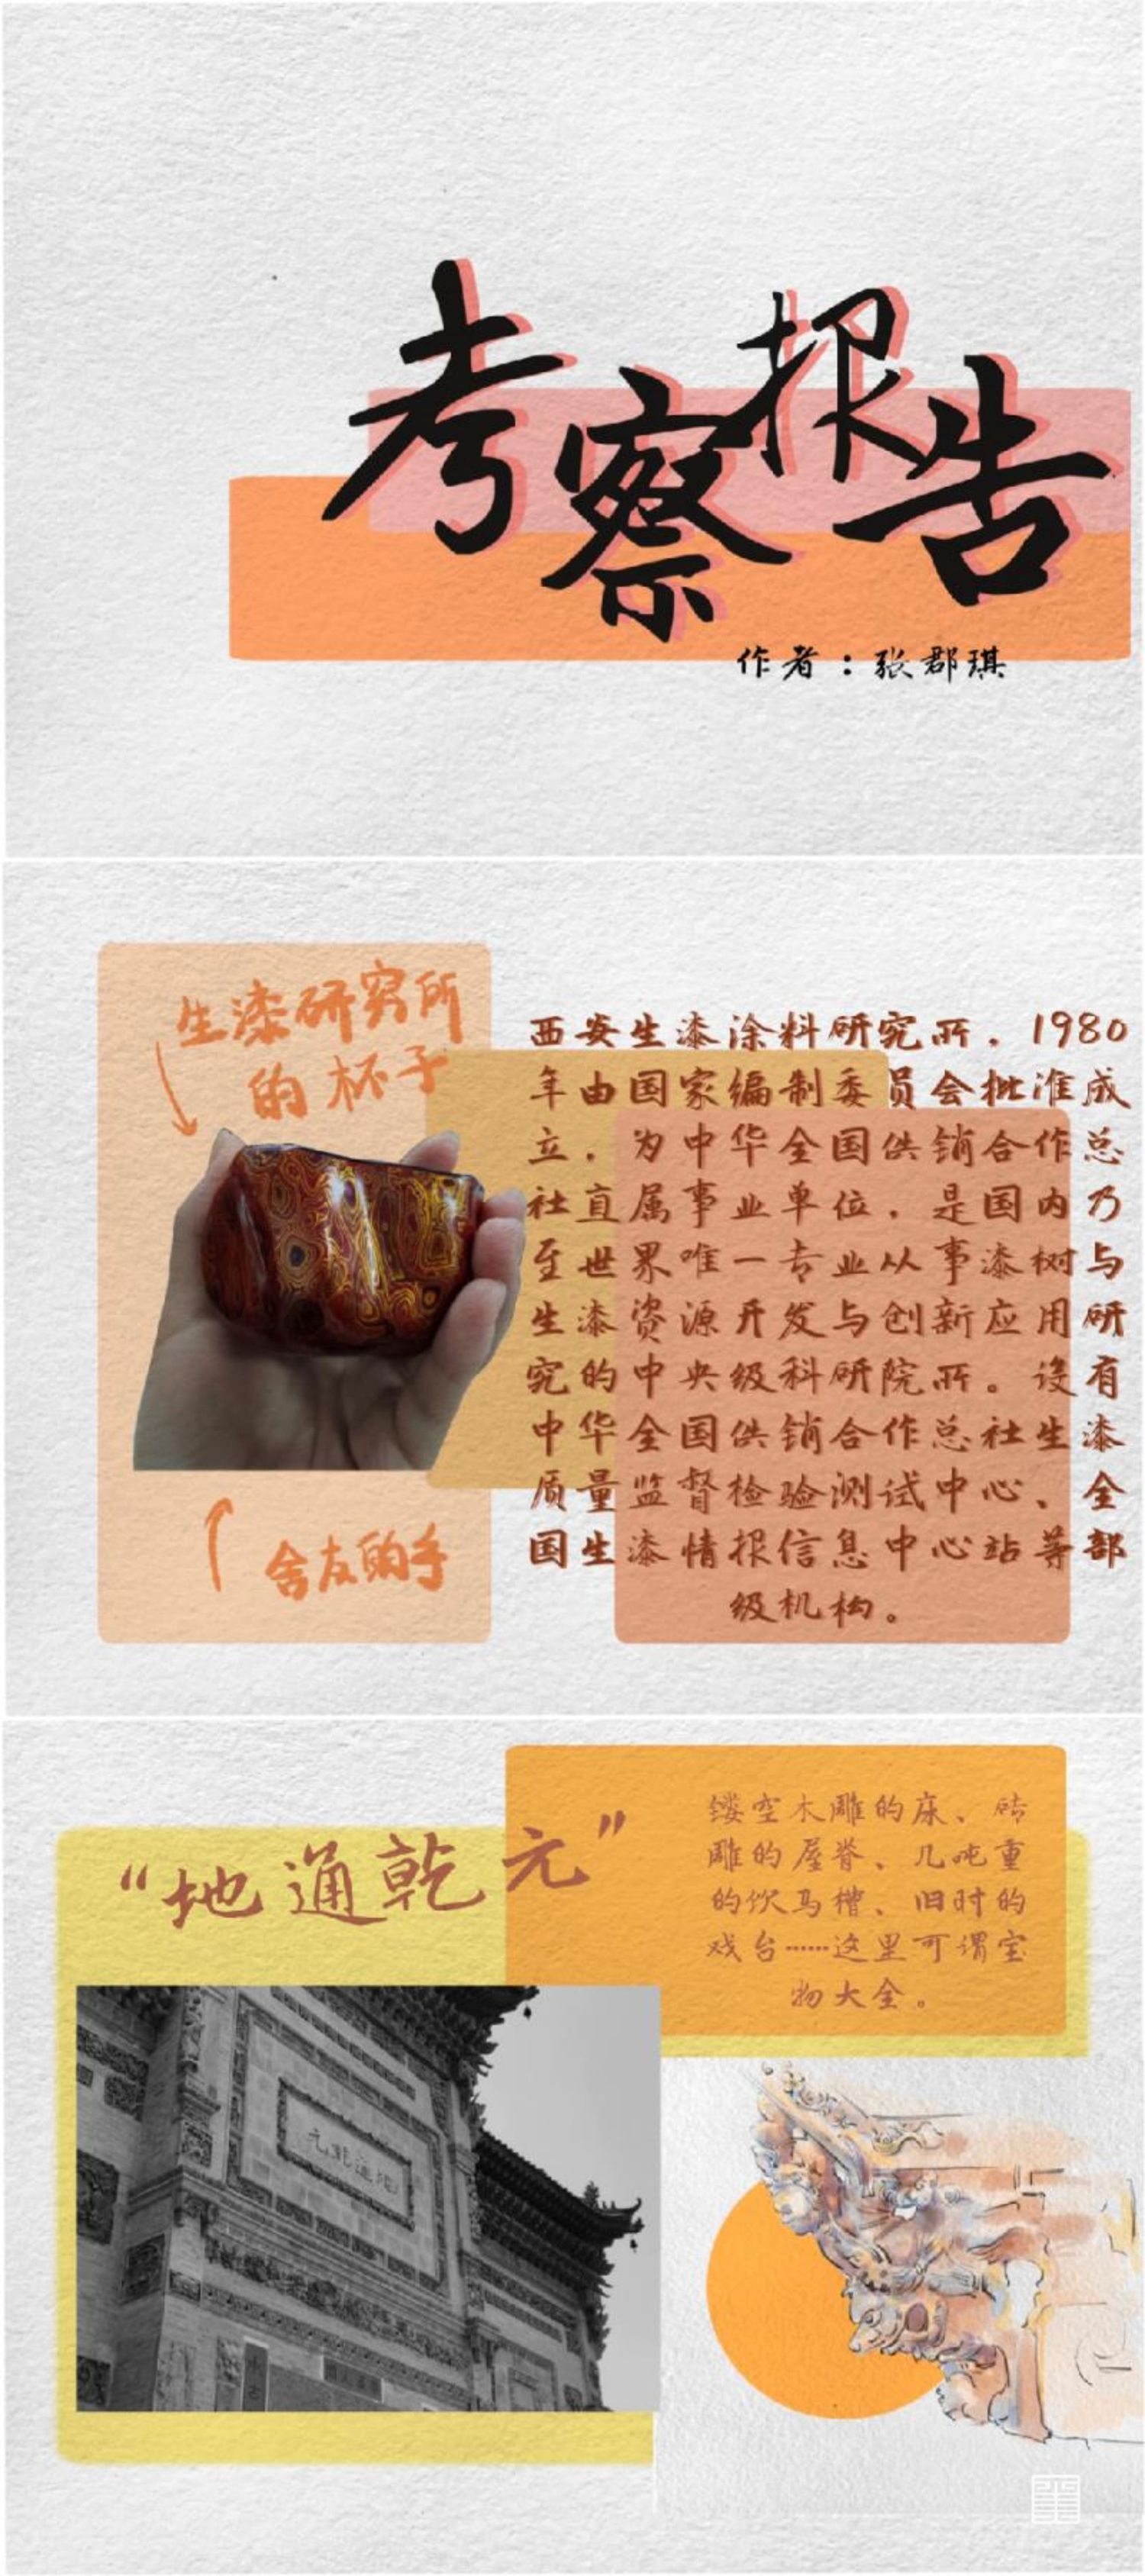 考察报告
作者：张郡琪
生漆研究所
的杯子
舍友的手
西安生漆涂料研究所，1980
年由国家编制委员会批准成
立，为中华全国供销合作总
社直属事业单位，是国内乃
至世界唯一专业从事漆树与
生漆资源开发与创新应用研
究的中央级科研院所。设有
中华全国供销合作总社生漆
质量监督检验测试中心、全
国生漆情报信息中心站等部
级机构。
“地通乾元”
镂空木雕的床、砖
雕的屋脊、几吨重
的饮马槽、旧时的
戏台……这里可谓宝
物大全。
元乾通地